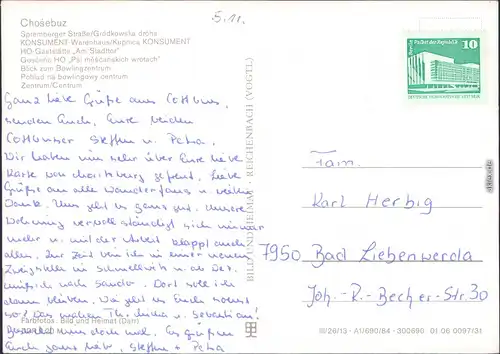 5.11.
Chośebuz
Spremberger Straße/Grodkowska droha
KONSUMENT-Warenhaus/Kupnica KONSUMENT
HO-Gaststätte „Am Stadttor“
Gosćeńc HO „Pśi měšćańskich wrotach“
Blick zum Bowlingzentrum
Póglěd na bowlingowy centrum
Zentrum/Centrum
Ganz liebe Grüße aus Cottbus,
senden Euch, Eure beiden
Cottbusser Steffen u. Petra.
Wir haben uns sehr über Eure liebe
Karte von gefreut. Liebe
Grüße an alle Wanderfans u. vielen
Dank. Uns geht es ganz gut. Unsere
Wohnung vervollständigt sich immer
mehr u. mit der Arbeit klappt auch
alles. Zur Zeit bin ich in einer neuen
Zweigstelle in Schmellwitz u. ab Dez.
nach Sandow. Dort soll ich
dann bleiben. Wie geht es Euch sonst
so? Was machen Th., u. Sebastian?
Es grüßen
Euch ganz lieb, Steffen + Petra
Farbfotos: Bild und Heimat (Darr)
BILD UND HEIMAT · REICHENBACH (VOGTL)
10
Berlin, Palast der Republik
DEUTSCHE DEMOKRATISCHE REPUBLIK
Fam.
Karl Herbig
7950 Bad Liebenwerda
Joh.-R.-Becher-Str. 30
III/26/13 · A1/690/84 · 300690 01 06 0097/31